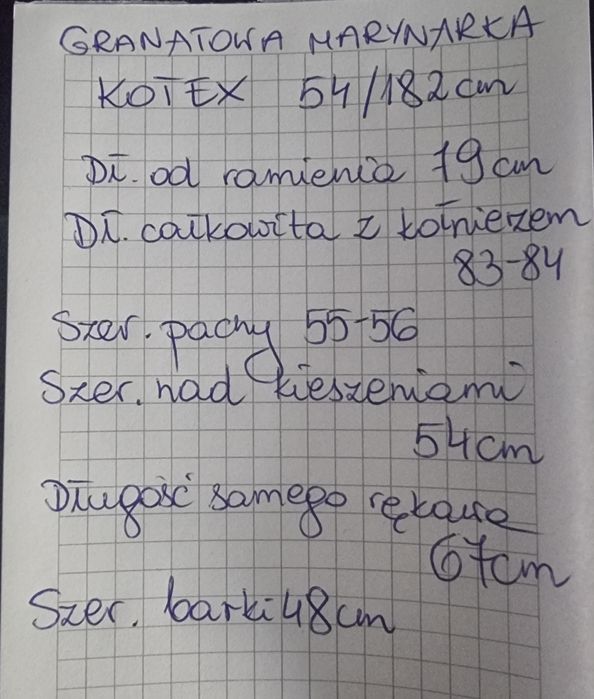 GRANATOWA MARYNARKA
KOTEX 54/182cm
Dł. od ramienia 79cm
Dł. całkowita z kołnierzem
83-84
Szer. pachy 55-56
Szer. nad kieszeniami
54cm
Długość samego rękawa
67cm
Szer. barki 48cm